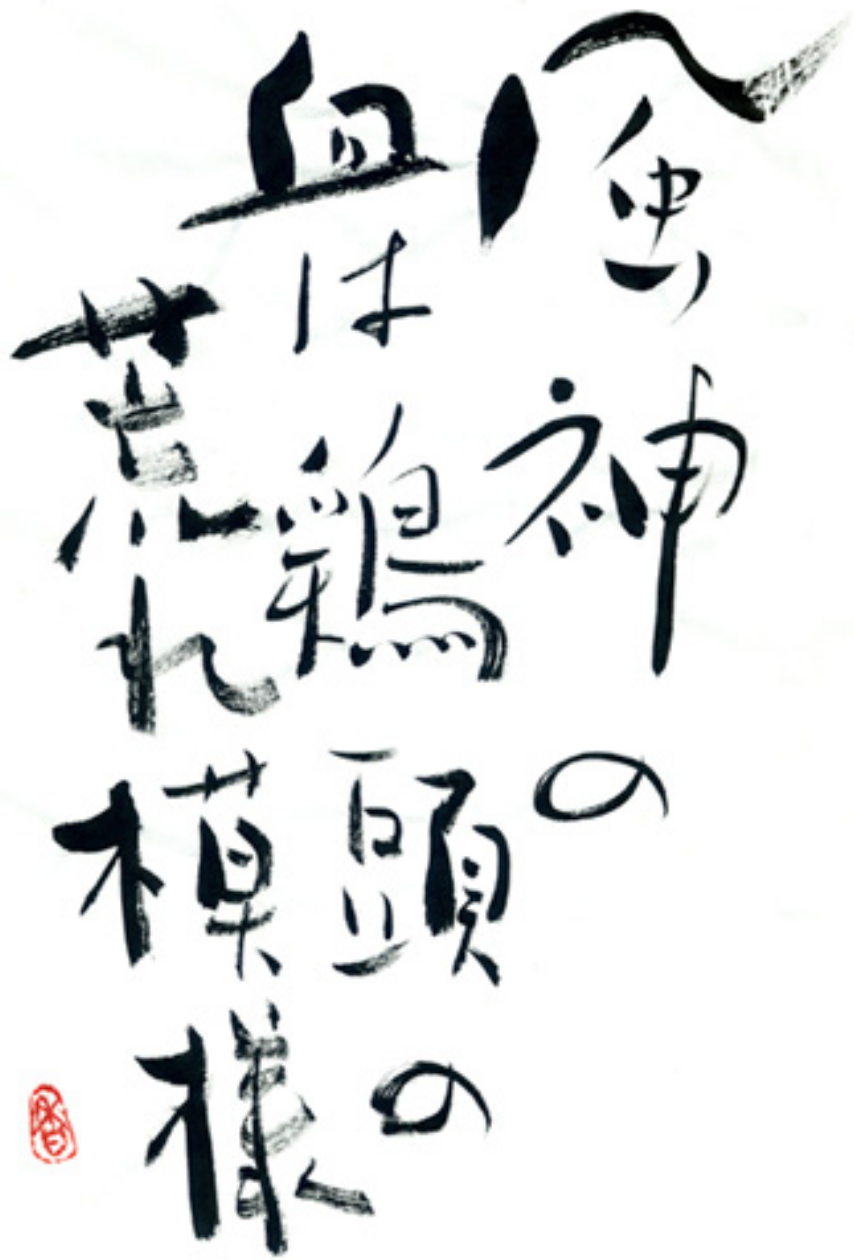 風神の
血は鶏頭の
荒れ模様